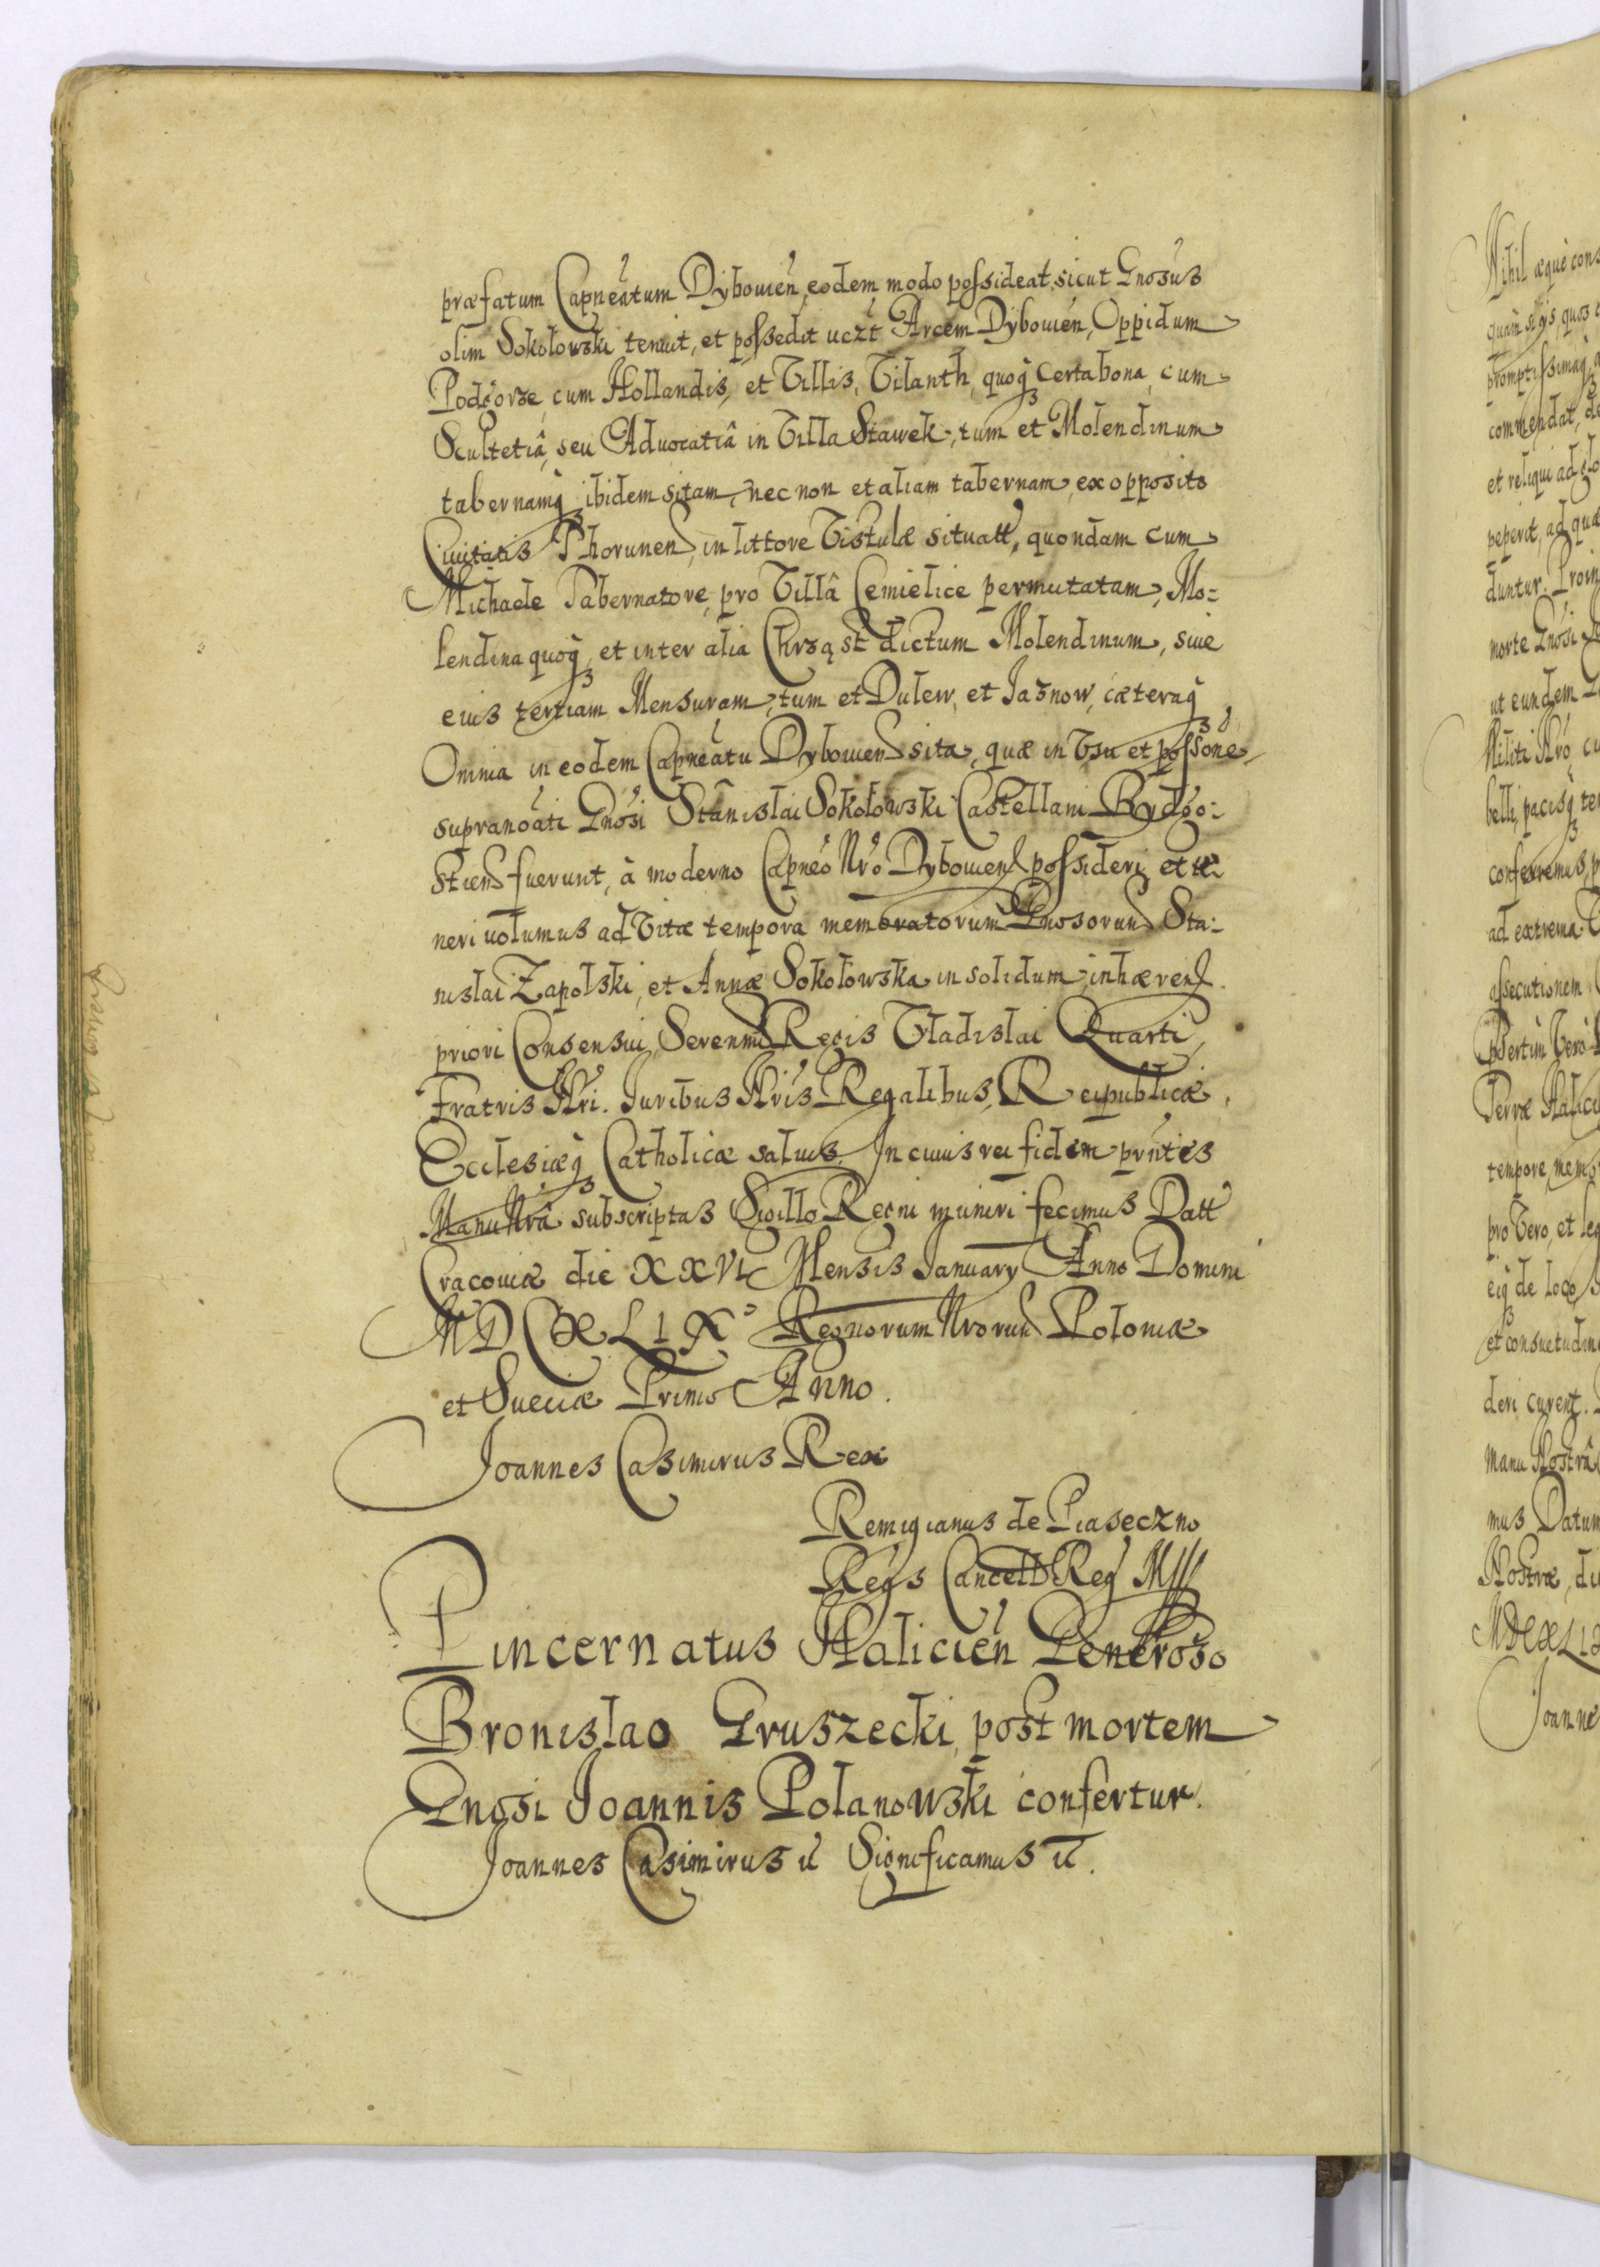 præfatum Capneatum Dybouien, eodem modo possideat, sicut Gnosus
olim Sokołowski tenuit, et possedit uczt Arcem Dybouien, Oppidum
Podgorze, cum Hollandis, et Villis, Vilanth, quoq₃ certa bona, cum
Scultetiâ, seu Aduocatiâ in Villa Stawek, tum et Molendinum
tabernamq₃ ibidem sitam, nec non et aliam tabernam, ex opposito
Ciuitatis Thorunen, in littore Vistulæ situatt, quondam cum
Michaele Tabernatore, pro Villâ Cemielice permutatam, Mo:
lendina quoq₃, et inter alia Chrząst dictum Molendinum, siue
eius tertiam Mensuram, tum et Dulew, et Jasnow, cæteraq₃
Omnia in eodem Capneatu Dybouien sita, quæ in Vsu et possone
supranoati Gnosi Stanislai Sokołowski Castellani Bydgo:
stien fuerunt, à moderno Capneo Nro Dybouien possideri et te:
neri uolumus ad Vitæ tempora memoratorum Gnosorum Sta:
nislai Zapolski, et Annæ Sokołowska in solidum, inhæren.
priori Consensui, Serenmi Regis Vladislai Quarti,
Fratris Nri. Juribus Nris Regalibus, Reipublicæ,
Ecclesiæq₃ Catholicæ saluis. In cuius rei fidem pntes
Manu Nrâ subscriptas Sigillo Regni muniri fecimus Datt
Cracouiæ die XXVI Mensis January Anno Domini
MDCXLIXº Regnorum Nrorum Poloniæ
et Sueciæ Primo Anno.
Joannes Casimirus Rex
Remigianus de Piaseczno
Regs Cancell Reg
Pincernatus Halicien Generoso
Bronislao Gruszecki, post mortem
Gnosi Joannis Polanowski confertur.
Joannes Casimirus ū Significamus ū.
Nihil æquè cons
promptissimaq₃
commendat, de
et reliqui ad
peperit, ad quæ
duntur. Proin
morte Gnosi
ut eundem
Militi Nro, cu
belli, pacisq₃ te
conferemus, p
ad extrema
assecutionem
Terræ Halici
tempore, memo
pro Vero, et leg
eiq₃ de loco
et consuetudin
deri curent.
manu Nostrâ
mus Datum
Nostræ, di
Joanne